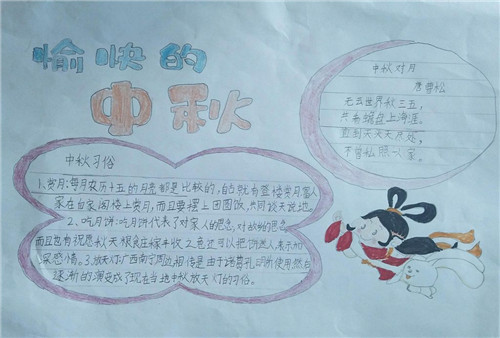 愉快的
中秋
中秋对月
唐曹松
无云世界秋三五,
共看蟾盘上海涯。
直到天头天尽处,
不曾私照一家。
中秋习俗
1、赏月:每月农历十五的月亮都是比较的,自己就有登楼赏月富人
家在自家阁楼上赏月,而且要摆上团圆饭,共同谈天说地。
2、吃月饼:吃月饼代表了对家人的思念,对故乡的思念,
而且也有祝愿秋天粮食庄家丰收
深感情。3、放天灯:广西南宁周边,相传是由于诸葛孔明所使用,然后
逐渐的演变成了现在当地中秋放天灯的习俗。